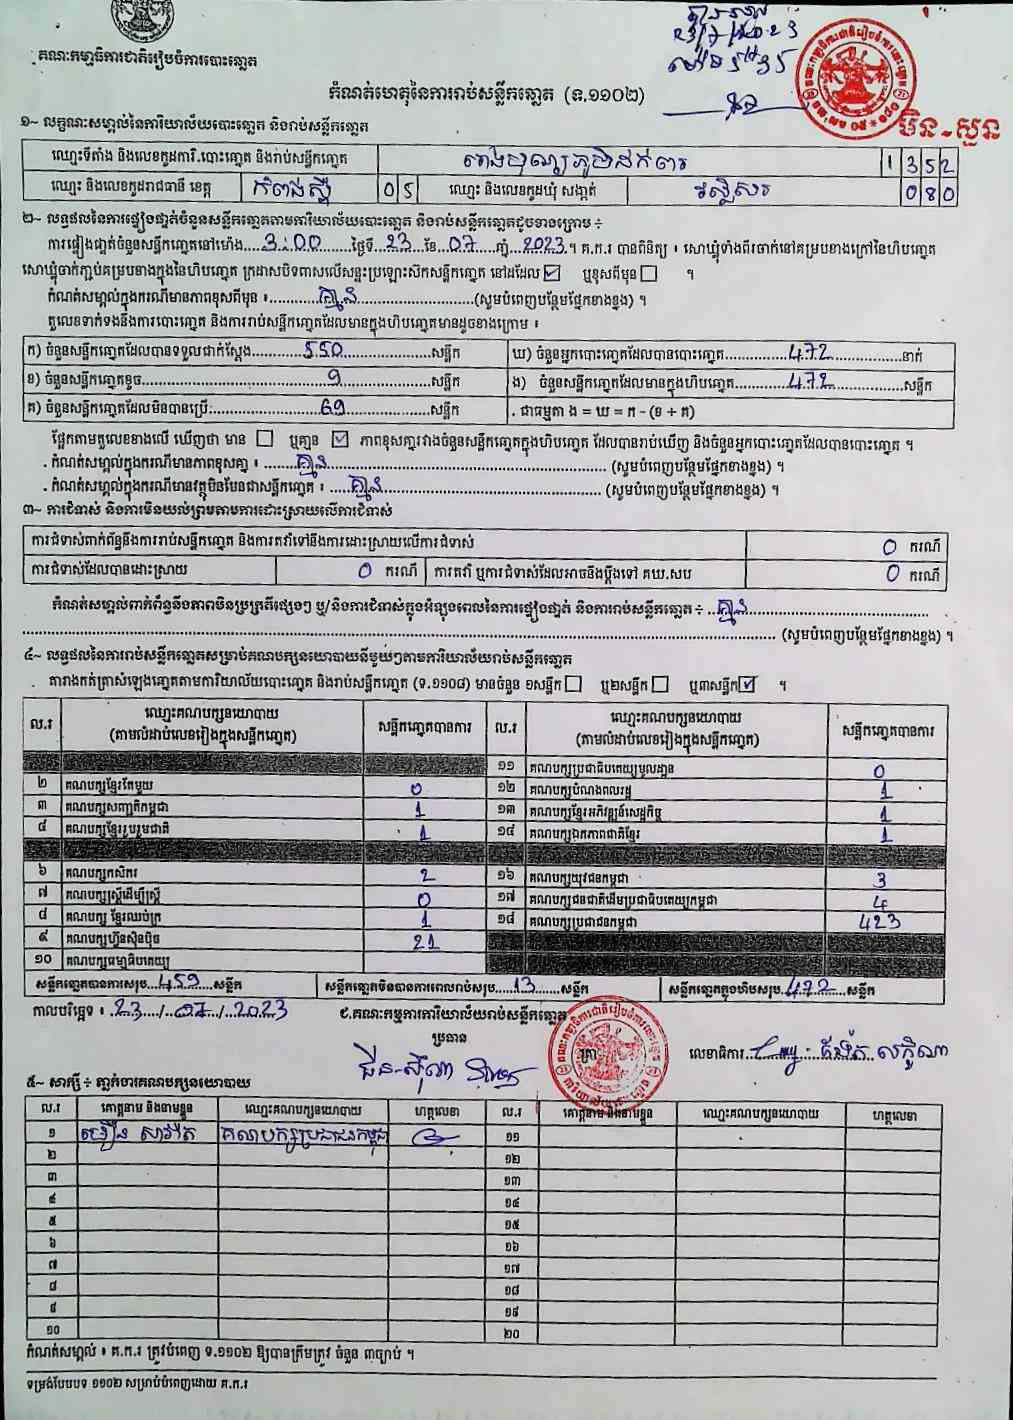 គណៈកម្មាធិការជាតិរៀបចំការបោះឆ្នោត
កំណត់ហេតុនៃការរាប់សន្លឹកឆ្នោត (ទ.១១០២)
មិន-សួន
១~ លក្ខណៈសម្គាល់នៃការិយាល័យបោះឆ្នោត និងរាប់សន្លឹកឆ្នោត
ឈ្មោះទីតាំង និងលេខកូដការិ.បោះឆ្នោត និងរាប់សន្លឹកឆ្នោត 1 3 5 2
ឈ្មោះ និងលេខកូដរាជធានី ខេត្ត កំពង់ស្ពឺ 0 5 ឈ្មោះ និងលេខកូដឃុំ សង្កាត់ 0 8 0
២~ លទ្ធផលនៃការផ្ទៀងផ្ទាត់ចំនួនសន្លឹកឆ្នោតតាមការិយាល័យបោះឆ្នោត និងរាប់សន្លឹកឆ្នោតដូចខាងក្រោម ÷
ការផ្ទៀងផ្ទាត់ចំនួនសន្លឹកឆ្នោតនៅម៉ោង 3:00 ថ្ងៃទី 23 ខែ 07 ឆ្នាំ 2023 ។ គ.ក.រ បានពិនិត្យ ៖ សោឃ្លុំទាំងពីរចាក់នៅគម្របខាងក្រៅនៃហិបឆ្នោត
សោឃ្លុំចាក់ភ្ជាប់គម្របខាងក្នុងនៃហិបឆ្នោត ក្រដាសបិទពាសលើសន្ទះប្រឡោះស៊កសន្លឹកឆ្នោត នៅដដែល ☑ ឬខុសពីមុន ☐ ។
កំណត់សម្គាល់ក្នុងករណីមានភាពខុសពីមុន ៖ គ្មាន (សូមបំពេញបន្ថែមផ្នែកខាងខ្នង) ។
តួលេខទាក់ទងនឹងការបោះឆ្នោត និងការរាប់សន្លឹកឆ្នោតដែលមានក្នុងហិបឆ្នោតមានដូចខាងក្រោម ៖
ក) ចំនួនសន្លឹកឆ្នោតដែលបានទទួលជាក់ស្តែង 550 សន្លឹក ឃ) ចំនួនអ្នកបោះឆ្នោតដែលបានបោះឆ្នោត 472 នាក់
ខ) ចំនួនសន្លឹកឆ្នោតខូច 9 សន្លឹក ង) ចំនួនសន្លឹកឆ្នោតដែលមានក្នុងហិបឆ្នោត 472 សន្លឹក
គ) ចំនួនសន្លឹកឆ្នោតដែលមិនបានប្រើ 69 សន្លឹក . ជាធម្មតា ង = ឃ = ក - (ខ + គ)
ផ្អែកតាមតួលេខខាងលើ ឃើញថា មាន ☐ ឬគ្មាន ☑ ភាពខុសគ្នារវាងចំនួនសន្លឹកឆ្នោតក្នុងហិបឆ្នោត ដែលបានរាប់ឃើញ និងចំនួនអ្នកបោះឆ្នោតដែលបានបោះឆ្នោត ។
. កំណត់សម្គាល់ក្នុងករណីមានភាពខុសគ្នា ៖ គ្មាន (សូមបំពេញបន្ថែមផ្នែកខាងខ្នង) ។
. កំណត់សម្គាល់ក្នុងករណីមានវត្ថុមិនមែនជាសន្លឹកឆ្នោត ៖ គ្មាន (សូមបំពេញបន្ថែមផ្នែកខាងខ្នង) ។
៣~ ការជំទាស់ និងការមិនយល់ព្រមតាមការដោះស្រាយលើការជំទាស់
ការជំទាស់ពាក់ព័ន្ធនឹងការរាប់សន្លឹកឆ្នោត និងការតវ៉ាទៅនឹងការដោះស្រាយលើការជំទាស់ 0 ករណី
ការជំទាស់ដែលបានដោះស្រាយ 0 ករណី ការតវ៉ា ឬការជំទាស់ដែលអាចនឹងប្តឹងទៅ គឃ.សប 0 ករណី
កំណត់សម្គាល់ពាក់ព័ន្ធនឹងភាពមិនប្រក្រតីផ្សេងៗ ឬ/និងការជំទាស់ក្នុងអំឡុងពេលនៃការផ្ទៀងផ្ទាត់ និងការរាប់សន្លឹកឆ្នោត ÷ គ្មាន
(សូមបំពេញបន្ថែមផ្នែកខាងខ្នង) ។
៤~ លទ្ធផលនៃការរាប់សន្លឹកឆ្នោតសម្រាប់គណបក្សនយោបាយនីមួយៗតាមការិយាល័យរាប់សន្លឹកឆ្នោត
តារាងកត់ត្រាសំឡេងឆ្នោតតាមការិយាល័យបោះឆ្នោត និងរាប់សន្លឹកឆ្នោត (ទ.១១០៨) មានចំនួន ១សន្លឹក ☐ ឬ២សន្លឹក ☐ ឬ៣សន្លឹក ☑ ។
ល.រ ឈ្មោះគណបក្សនយោបាយ (តាមលំដាប់លេខរៀងក្នុងសន្លឹកឆ្នោត) សន្លឹកឆ្នោតបានការ ល.រ ឈ្មោះគណបក្សនយោបាយ (តាមលំដាប់លេខរៀងក្នុងសន្លឹកឆ្នោត) សន្លឹកឆ្នោតបានការ
១១ គណបក្សប្រជាធិបតេយ្យមូលដ្ឋាន 0
២ គណបក្សខ្មែរតែមួយ 0 ១២ គណបក្សបំណងពលរដ្ឋ 1
៣ គណបក្សសញ្ជាតិកម្ពុជា 1 ១៣ គណបក្សខ្មែរអភិវឌ្ឍន៍សេដ្ឋកិច្ច 1
៤ គណបក្សខ្មែររួបរួមជាតិ 1 ១៤ គណបក្សឯកភាពជាតិខ្មែរ 1
៦ គណបក្សកសិករ 2 ១៦ គណបក្សយុវជនកម្ពុជា 3
៧ គណបក្សស្ត្រីដើម្បីស្ត្រី 0 ១៧ គណបក្សជនជាតិដើមប្រជាធិបតេយ្យកម្ពុជា 4
៨ គណបក្ស ខ្មែរឈប់ក្រ 1 ១៨ គណបក្សប្រជាជនកម្ពុជា 423
៩ គណបក្សហ្វ៊ុនស៊ិនប៉ិច 21
១០ គណបក្សធម្មាធិបតេយ្យ
សន្លឹកឆ្នោតបានការសរុប 459 សន្លឹក សន្លឹកឆ្នោតមិនបានការពេលរាប់សរុប 13 សន្លឹក សន្លឹកឆ្នោតក្នុងហិបសរុប 472 សន្លឹក
កាលបរិច្ឆេទ ៖ 23 / 07 / 2023 ជ.គណៈកម្មការការិយាល័យរាប់សន្លឹកឆ្នោត
ប្រធាន ត្រា លេខាធិការ
៥~ សាក្សី ÷ ភ្នាក់ងារគណបក្សនយោបាយ
ល.រ គោត្តនាម និងនាមខ្លួន ឈ្មោះគណបក្សនយោបាយ ហត្ថលេខា ល.រ គោត្តនាម និងនាមខ្លួន ឈ្មោះគណបក្សនយោបាយ ហត្ថលេខា
១ គណបក្សប្រជាជនកម្ពុជា ១១
២ ១២
៣ ១៣
៤ ១៤
៥ ១៥
៦ ១៦
៧ ១៧
៨ ១៨
៩ ១៩
១០ ២០
កំណត់សម្គាល់ ៖ គ.ក.រ ត្រូវបំពេញ ទ.១១០២ ឱ្យបានត្រឹមត្រូវ ចំនួន ៣ច្បាប់ ។
ទម្រង់បែបបទ ១១០២ សម្រាប់បំពេញដោយ គ.ក.រ